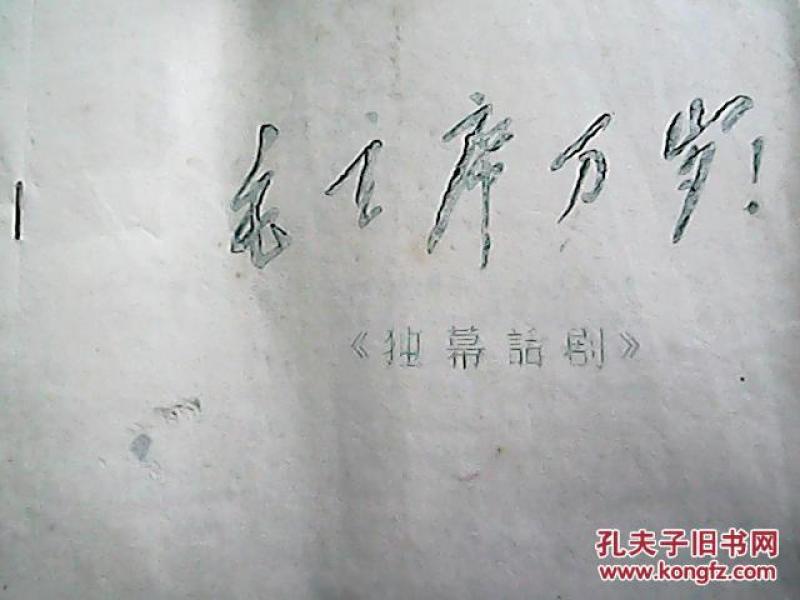 毛主席万岁！
《独幕話剧》
孔夫子旧书网
www.kongfz.com